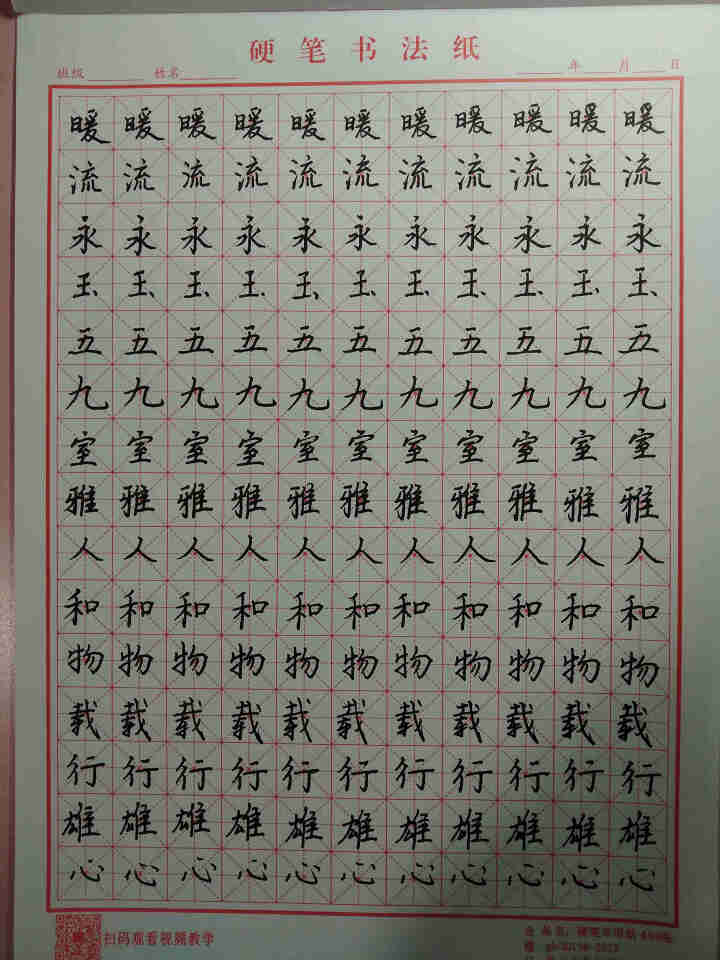 硬笔书法纸
班级 姓名 年 月 日
暖暖暖暖暖暖暖暖暖暖暖
流流流流流流流流流流流
永永永永永永永永永永永
玉玉玉玉玉玉玉玉玉玉玉
五五五五五五五五五五五
九九九九九九九九九九九
室室室室室室室室室室室
雅雅雅雅雅雅雅雅雅雅雅
人人人人人人人人人人人
和和和和和和和和和和和
物物物物物物物物物物物
载载载载载载载载载载载
行行行行行行行行行行行
雄雄雄雄雄雄雄雄雄雄雄
心心心心心心心心心心心
扫码观看视频教学